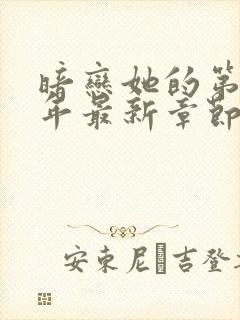 暗戀她的第
年最新章節
安東尼 吉登